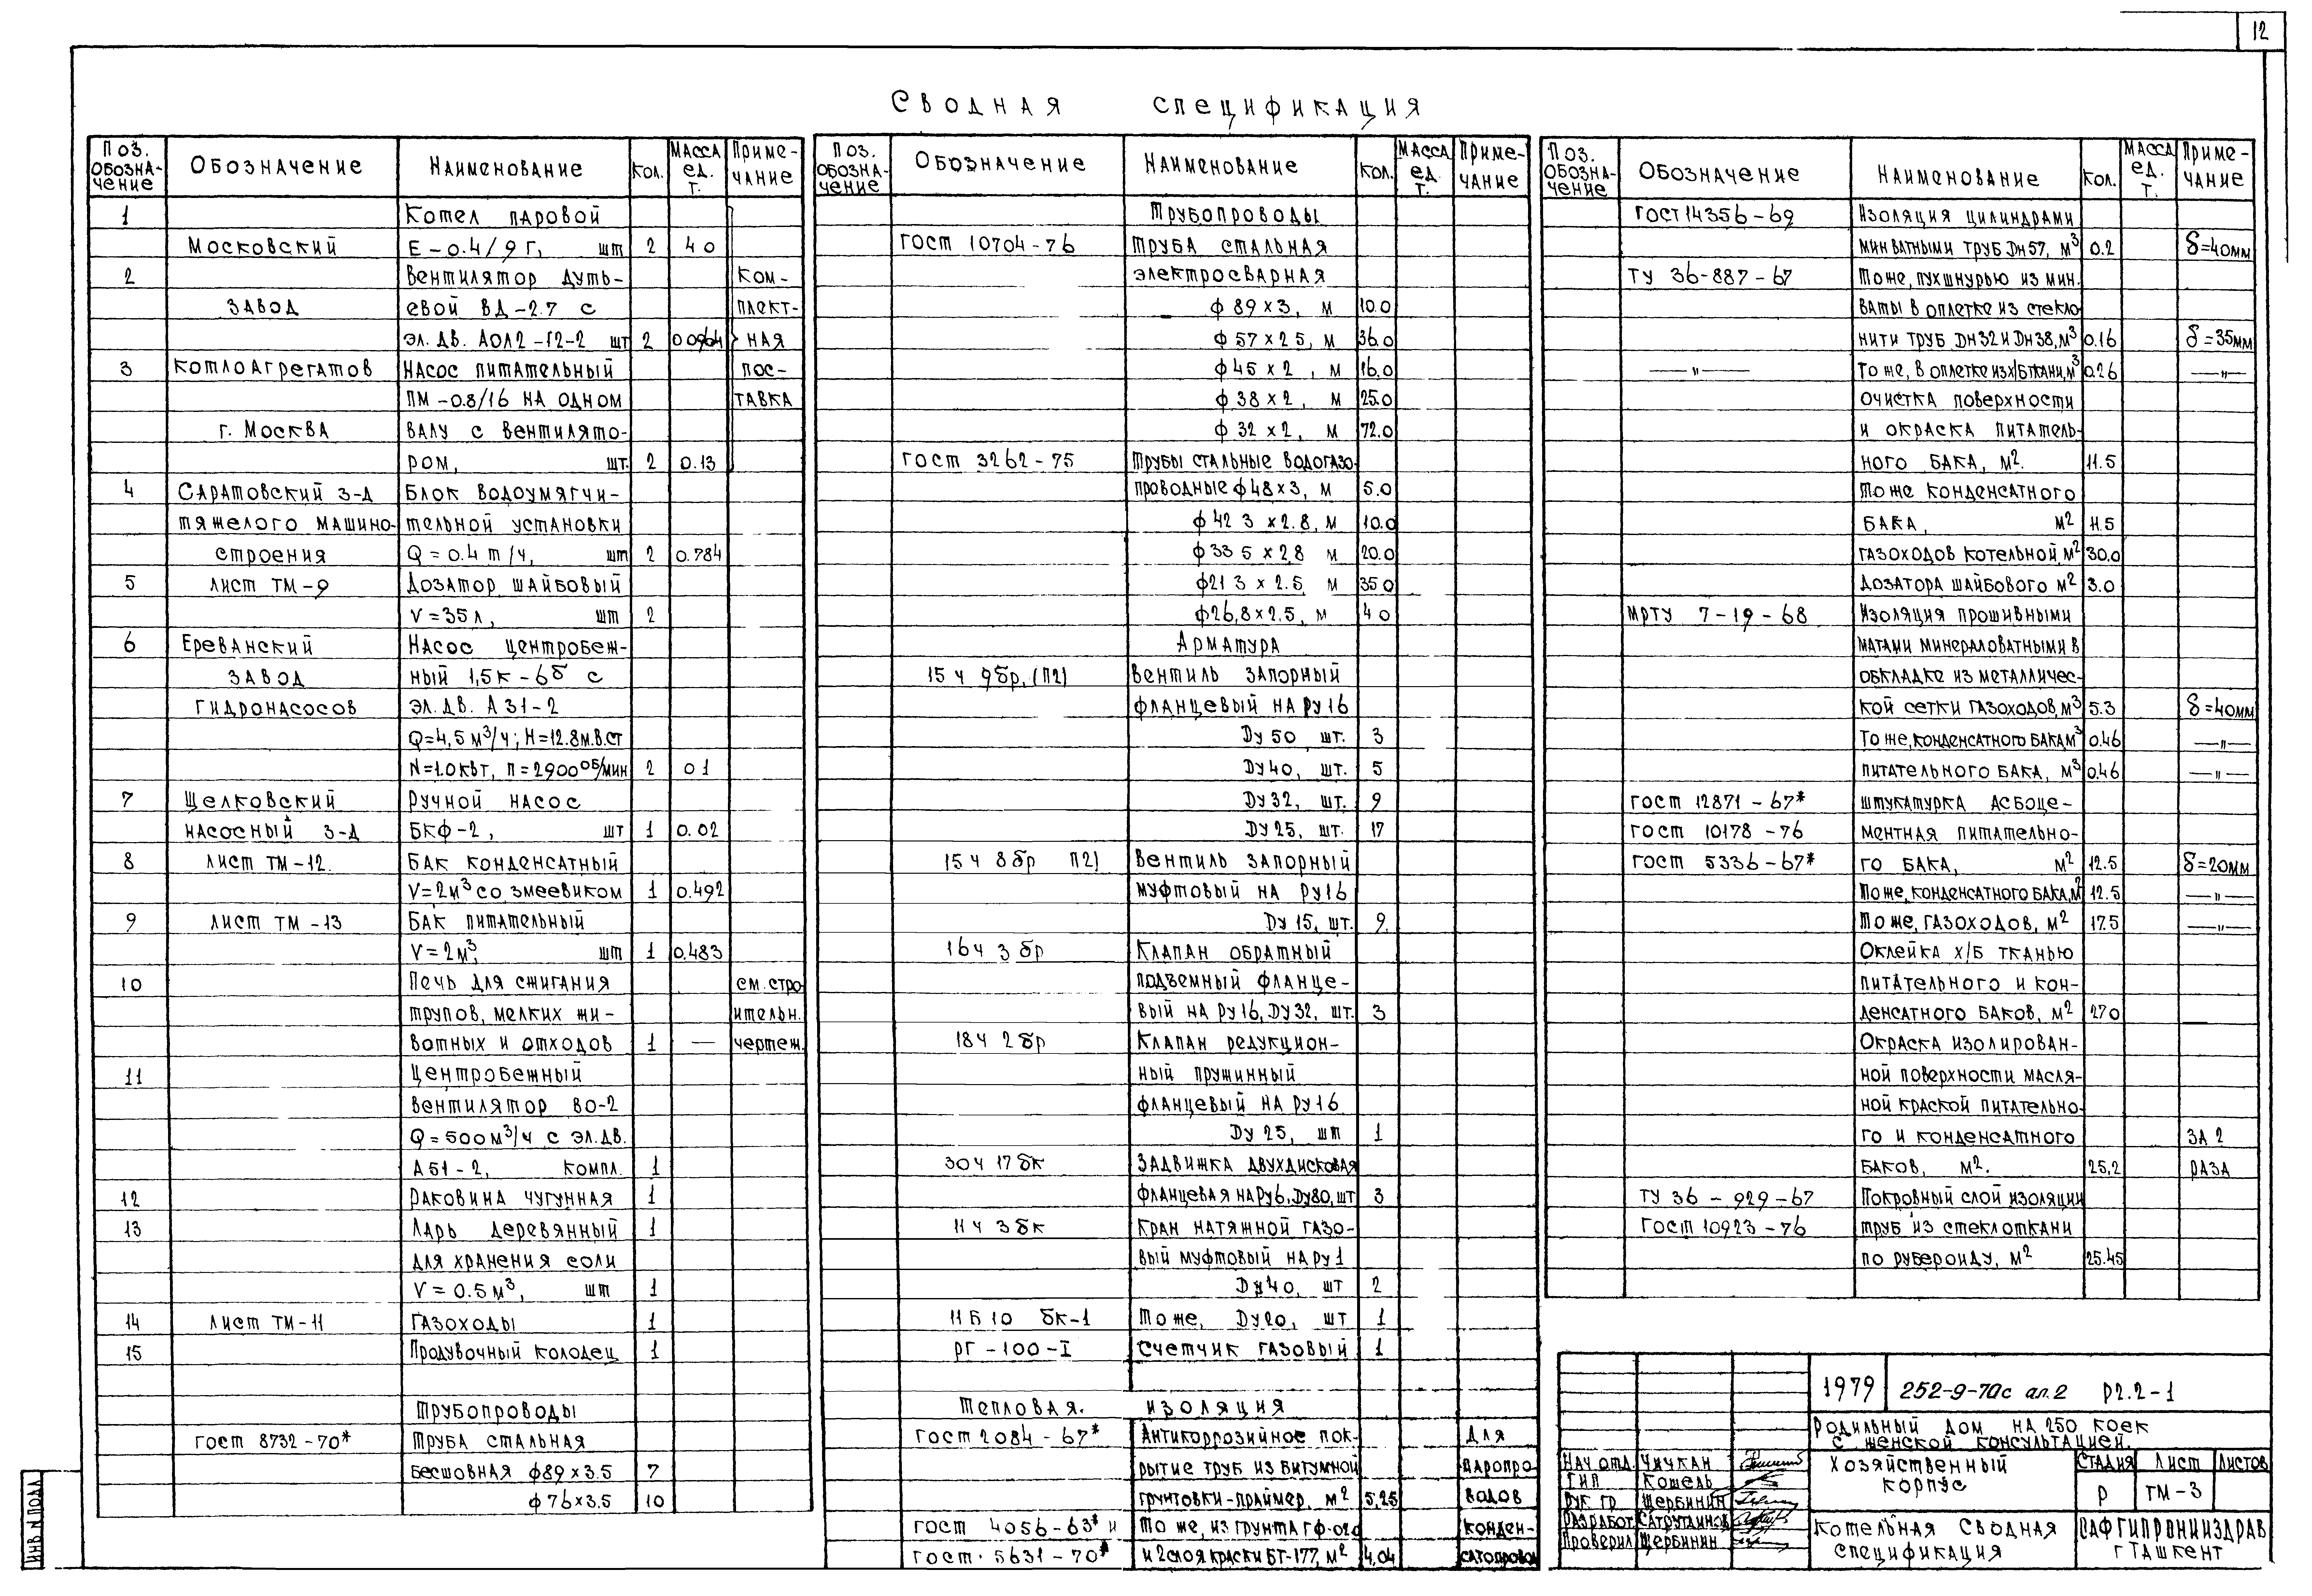 12
Сводная спецификация
Поз. обозначение Обозначение Наименование Кол. Масса ед. т. Примечание
1 Котел паровой
Московский Е-0.4/9Г, шт 2 4 0
2 Вентилятор дуть- ком-
завод евой ВД-2.7 с плект-
эл. дв. АОЛ2-12-2 шт 2 0 0964 ная
3 котлоагрегатов Насос питательный пос-
ПМ-0.8/16 на одном тавка
г. Москва валу с вентилято-
ром, шт. 2 0.13
4 Саратовский з-д Блок водоумягчи-
тяжелого машино- тельной установки
строения Q=0.4 т/ч, шт 2 0.784
5 лист ТМ-9 Дозатор шайбовый
V=35л, шт 2
6 Ереванский Насос центробеж-
завод ный 1,5к-6б с
гидронасосов эл. дв. А 31-2
Q=4,5 м³/ч; H=12.8м.в.ст
N=1.0кВт, п=2900об/мин 2 0 1
7 Щелковский Ручной насос
насосный з-д БКФ-2, шт 1 0.02
8 лист ТМ-12. Бак конденсатный
V=2м³ со змеевиком 1 0.492
9 лист ТМ-13 Бак питательный
V=2м³, шт 1 0.483
10 Печь для сжигания см. стро-
трупов, мелких жи- ительн.
вотных и отходов 1 — чертеж.
11 Центробежный
вентилятор ВО-2
Q=500м³/ч с эл. дв.
А51-2, компл. 1
12 Раковина чугунная 1
13 Ларь деревянный 1
для хранения соли
V=0.5м³, шт 1
14 лист ТМ-11 Газоходы 1
15 Продувочный колодец 1
Трубопроводы
ГОСТ 8732-70* Труба стальная
бесшовная ф89х3.5 7
ф76х3.5 10
Поз. обозначение Обозначение Наименование Кол. Масса ед. т. Примечание
Трубопроводы
ГОСТ 10704-76 Труба стальная
электросварная
ф 89х3, м 10.0
ф 57х2 5, м 36.0
ф45х2, м 16.0
ф 38х2, м 25.0
ф 32х2, м 72.0
ГОСТ 3262-75 Трубы стальные водогазо-
проводные ф48х3, м 5.0
ф 42 3 х 2.8, м 10.0
ф33 5 х 2,8 м 20.0
ф21 3 х 2.5 м 35 0
ф26,8х2.5, м 4 0
Арматура
15 ч 9бр, (П2) Вентиль запорный
фланцевый на Ру16
Ду 50 шт. 3
Ду40, шт. 5
Ду32, шт. 9
Ду25, шт. 17
15 ч 8 бр П2) Вентиль запорный
муфтовый на Ру16
Ду 15, шт. 9
16ч 3 бр Клапан обратный
подъемный фланце-
вый на Ру16, Ду32, шт. 3
18ч 2 бр Клапан редукцион-
ный пружинный
фланцевый на Ру16
Ду 25, шт 1
30ч 17 бк Задвижка двухдисковая
фланцевая на Ру6, Ду80, шт 3
11ч 3 бк Кран натяжной газо-
вый муфтовый на Ру1
Ду40, шт 2
11 Б 10 бк-1 То же, Ду20, шт 1
РГ-100-I Счетчик газовый 1
Тепловая. изоляция
ГОСТ 2084-67* Антикоррозийное пок- для
рытие труб из битумной паропро
грунтовки-праймер, м² 5,25 водов
ГОСТ 4056-63* и То же, из грунта ГФ-020 конден-
ГОСТ. 5631-70* и 2 слоя краски БТ-177, м² 4,04 сатопровод
Поз. обозначение Обозначение Наименование Кол. Масса ед. т. Примечание
ГОСТ 14356-69 Изоляция цилиндрами
минватными труб Dн57, м³ 0.2 δ=40мм
ТУ 36-887-67 То же, пухшнурью из мин.
ваты в оплетке из стекло
нити труб Dн32 и Dн38, м³ 0.16 δ=35мм
—"— То же, в оплетке из х/б ткани, м³ 0.26 —"—
Очистка поверхности
и окраска питатель-
ного бака, м². 11.5
То же конденсатного
бака, м² 11.5
газоходов котельной, м² 30.0
дозатора шайбового м² 3.0
МРТУ 7-19-68 Изоляция прошивными
матами минераловатными в
обкладке из металличес-
кой сетки газоходов, м³ 5.3 δ=40мм
То же, конденсатного бака, м³ 0.46 —"—
питательного бака, м³ 0.46 —"—
ГОСТ 12871-67* Штукатурка асбоце-
ГОСТ 10178-76 ментная питательно-
ГОСТ 5336-67* го бака, м² 12.5 δ=20мм
То же, конденсатного бака, м² 12.5 —"—
То же, газоходов, м² 17.5 —"—
Оклейка х/б тканью
питательного и кон-
денсатного баков, м² 27.0 —
Окраска изолирован-
ной поверхности масля-
ной краской питательно-
го и конденсатного за 2
баков, м². 25,2 раза
ТУ 36-929-67 Покровный слой изоляции
ГОСТ 10923-76 труб из стеклоткани
по рубероиду, м² 25.45
1979 252-9-70с ал.2 Р2.2-1
Родильный дом на 250 коек
с женской консультацией.
Нач отд. Чичкан
ГИП Кошель
Рук гр Щербинин
Разработ. Сатрутдинов
Проверил Щербинин
Хозяйственный корпус
Стадия Лист Листов
Р ТМ-3
Котельная Сводная спецификация
САФГИПРОНИИЗДРАВ
г Ташкент
Инв N подл